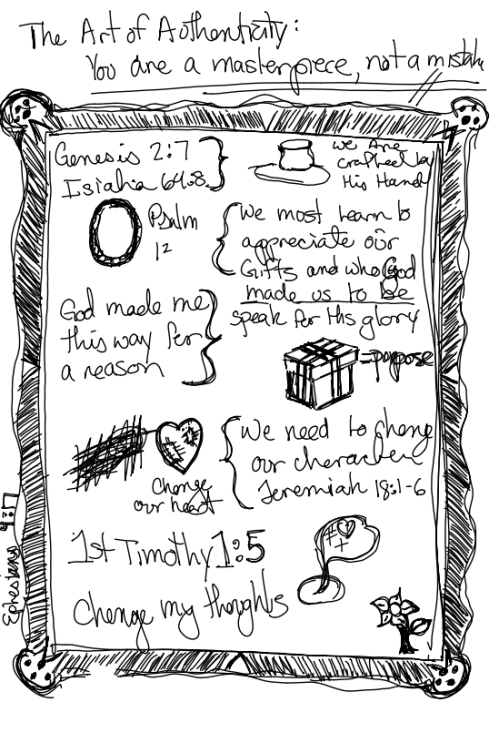 The Art of Authenticity:
You are a masterpiece, not a mistake
Genesis 2:7
Isiahia 64:8
we Are
crafted by
His Hand
Psalm
12
we most learn to
appreciate our
Gifts and who God
made us to be
speak for His glory
God made me
this way for
a reason
=purpose
we need to cheng
our character
Jeremiah 18:1-6
Change
our heart
1st Timothy 1:5
Change my thoughts
Ephesians 4:17